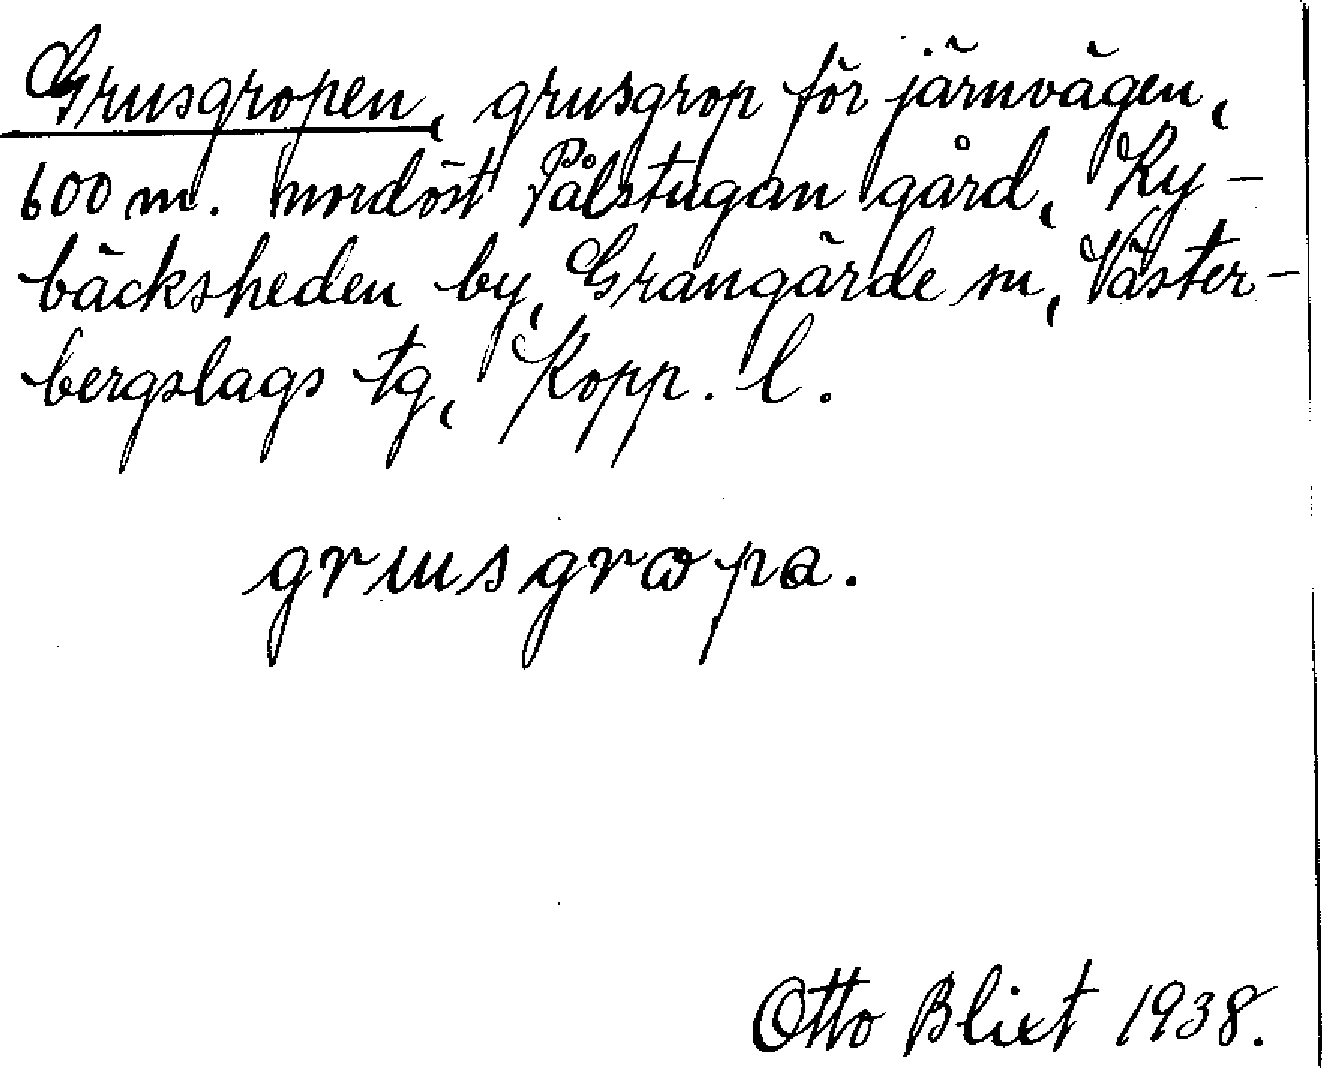 Grusgropen, grusgrop för järnvägen,
600 m. nordöst Pålstugan gård, Ry-
bäcksheden by, Grangärde sn, Väster-
bergslags tg, Kopp. l.
grusgropa.
Otto Blixt 1938.